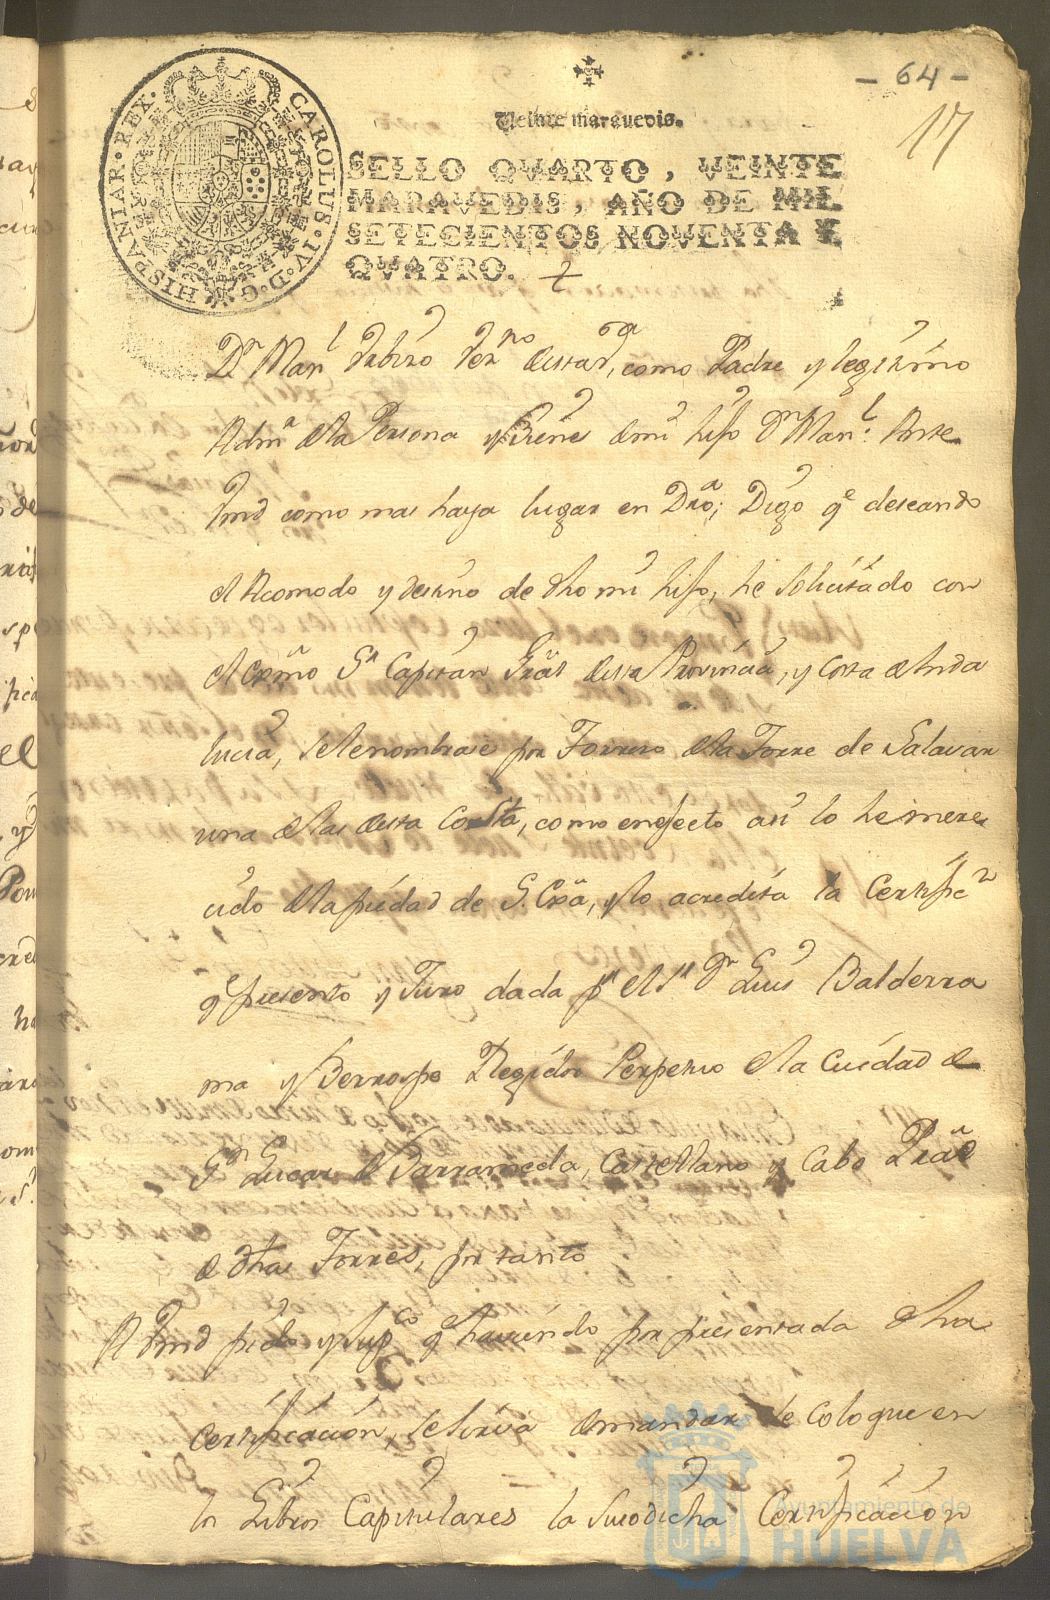 - 64 -
17
Veinte marauedis.
SELLO QVARTO, VEINTE
MARAVEDIS, AÑO DE MIL
SETECIENTOS NOVENTA Y
QVATRO.
CAROLUS·IV·D·G·HISPANIAR·REX·
Dn Manl Vrbiro Vezno desta, como Padre y legitimo
Admr de la Persona y Bienes de mi hijo Dn Manl Ante
Vmd como mas haya lugar en Dro; Digo qe deseando
el Acomodo y destino de dho mi hijo, he solicitado con
el exmo Sr Capitan Gral desta Provincia, y costa de Anda
lucia, se le nombrase por Torrero de la Torre de Salavar
una de las desta Costa, como en efecto asi lo he mere
cido de la piedad de S. Exa, y lo acredita la Certificn
qe presento y Juro dada pr el Sr Dn Luis Balderra
ma y Berrospe Regidor Perpetuo de la Ciudad de
Sn Lucar de Barrameda, Castellano y Cabo Pral
de dhas Torres, por tanto
A Vmd pido y supco qe haviendo por presentada dha
Certificacion, se sirva de mandar se coloque en
los Libros Capitulares la susodicha Certificacion
Ayuntamiento de
HUELVA